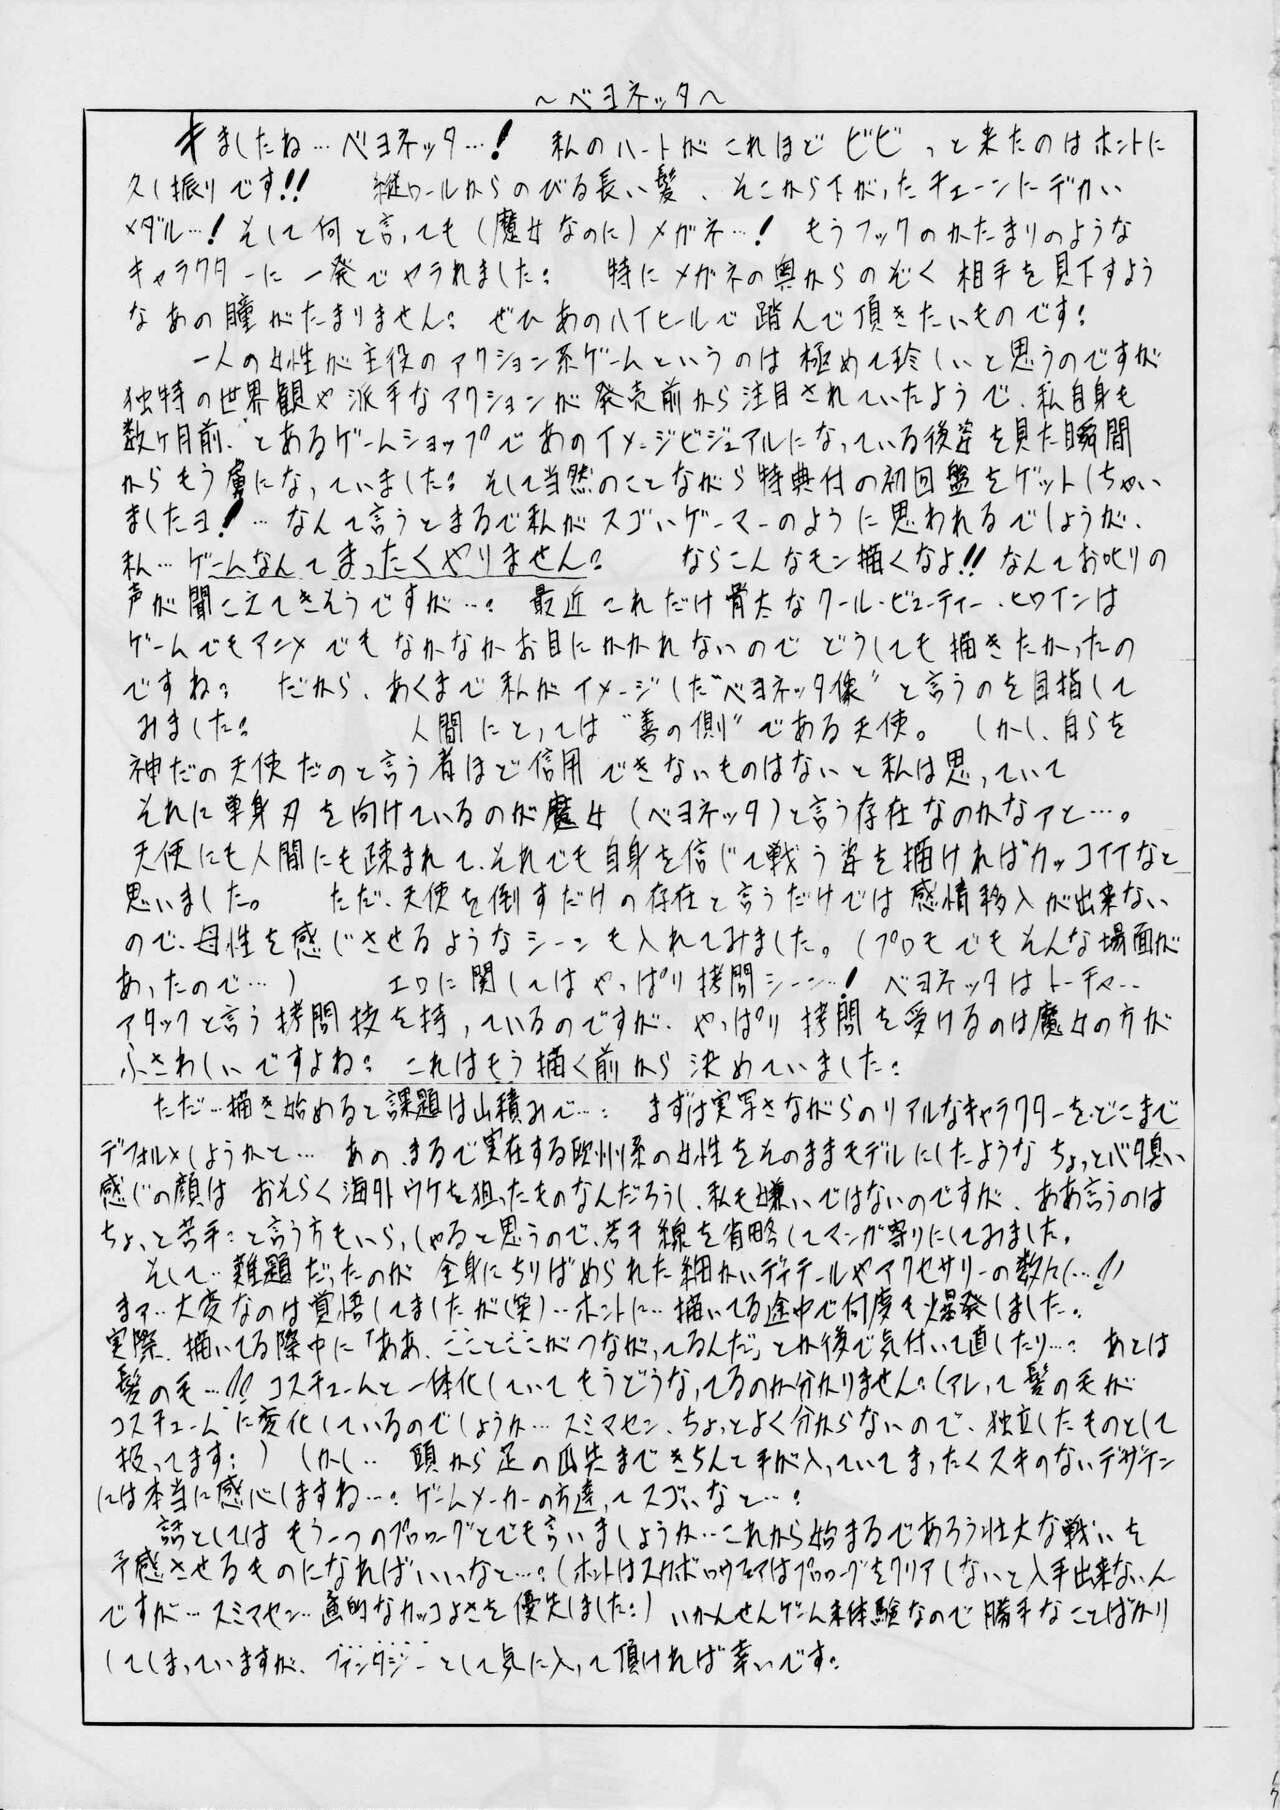 ～ベヨネッタ～
キましたね…ベヨネッタ…! 私のハートがこれほど ビビっと来たのはホントに
久し振りです!! 縦ロールからのびる長い髪、そこから下がったチェーンにデカい
メダル…! そして何と言っても(魔女なのに)メガネ…! もうフックのかたまりのような
キャラクターに一発でヤラれました: 特にメガネの奥からのぞく相手を見下すよう
なあの瞳がたまりません: ぜひあのハイヒールで踏んで頂きたいものです:
一人の女性が主役のアクション系ゲームというのは極めて珍しいと思うのですが
独特の世界観や派手なアクションが発売前から注目されていたようで、私自身も
数ヶ月前、とあるゲームショップであのイメージビジュアルになっている後姿を見た瞬間
からもう虜になっていました: そして当然のことながら特典付の初回盤をゲットしちゃい
ましたヨ! …なんて言うとまるで私がスゴいゲーマーのように思われるでしょうが、
私…ゲームなんてまったくやりません: ならこんなモン描くなよ!! なんてお叱りの
声が聞こえてきそうですが…: 最近これだけ骨太なクール・ビューティー・ヒロインは
ゲームでもアニメでもなかなかお目にかかれないのでどうしても描きたかったの
ですね: だから、あくまで私がイメージした“ベヨネッタ像”と言うのを目指して
みました: 人間にとっては“善の側”である天使。 しかし、自らを
神だの天使だのと言う者ほど信用できないものはないと私は思っていて
それに単身刃を向けているのが魔女(ベヨネッタ)と言う存在なのかなァと…。
天使にも人間にも疎まれて、それでも自身を信じて戦う姿を描ければカッコイイなと
思いました。 ただ、天使を倒すだけの存在と言うだけでは感情移入が出来ない
ので、母性を感じさせるようなシーンも入れてみました。(プロモでもそんな場面が
あったので…) エロに関してはやっぱり拷問シーン…! ベヨネッタはトーチャー・
アタックと言う拷問技を持っているのですが、やっぱり拷問を受けるのは魔女の方が
ふさわしいですよね: これはもう描く前から決めていました:
ただ…描き始めると課題は山積みで…: まずは実写さながらのリアルなキャラクターを、どこまで
デフォルメしようかと… あの、まるで実在する欧州系の女性をそのままモデルにしたようなちょっとバタ臭い
感じの顔はおそらく海外ウケを狙ったものなんだろうし、私も嫌いではないのですが、ああ言うのは
ちょっと苦手:と言う方もいらっしゃると思うので、若干線を省略してマンガ寄りにしてみました。
そして…難題だったのが全身にちりばめられた細かいディテールやアクセサリーの数々…!!
まァ…大変なのは覚悟してましたが(笑)…ホントに…描いてる途中で何度も爆発しました。
実際、描いてる際中に「ああ、こことここがつながってるんだ」とか後で気付いて直したり…: あとは
髪の毛…!! コスチュームと一体化していてもうどうなってるのか分かりません:(アレって髪の毛が
コスチュームに変化しているのでしょうか…スミマセン、ちょっとよく分からないので、独立したものとして
扱ってます:) しかし… 頭から足の爪先まできちんと手が入っていてまったくスキのないデザイン
には本当に感心しますね…: ゲームメーカーの方達ってスゴいなと…:
話としてはもう一つのプロローグとでも言いましょうか…これから始まるであろう壮大な戦いを
予感させるものになればいいなと…:(ホントはスカボロウフェアはプロローグをクリアしないと入手出来ないん
ですが…スミマセン…画的なカッコよさを優先しました:) いかんせんゲーム未体験なので勝手なことばかり
してしまっていますが、ファンタジーとして気に入って頂ければ幸いです: